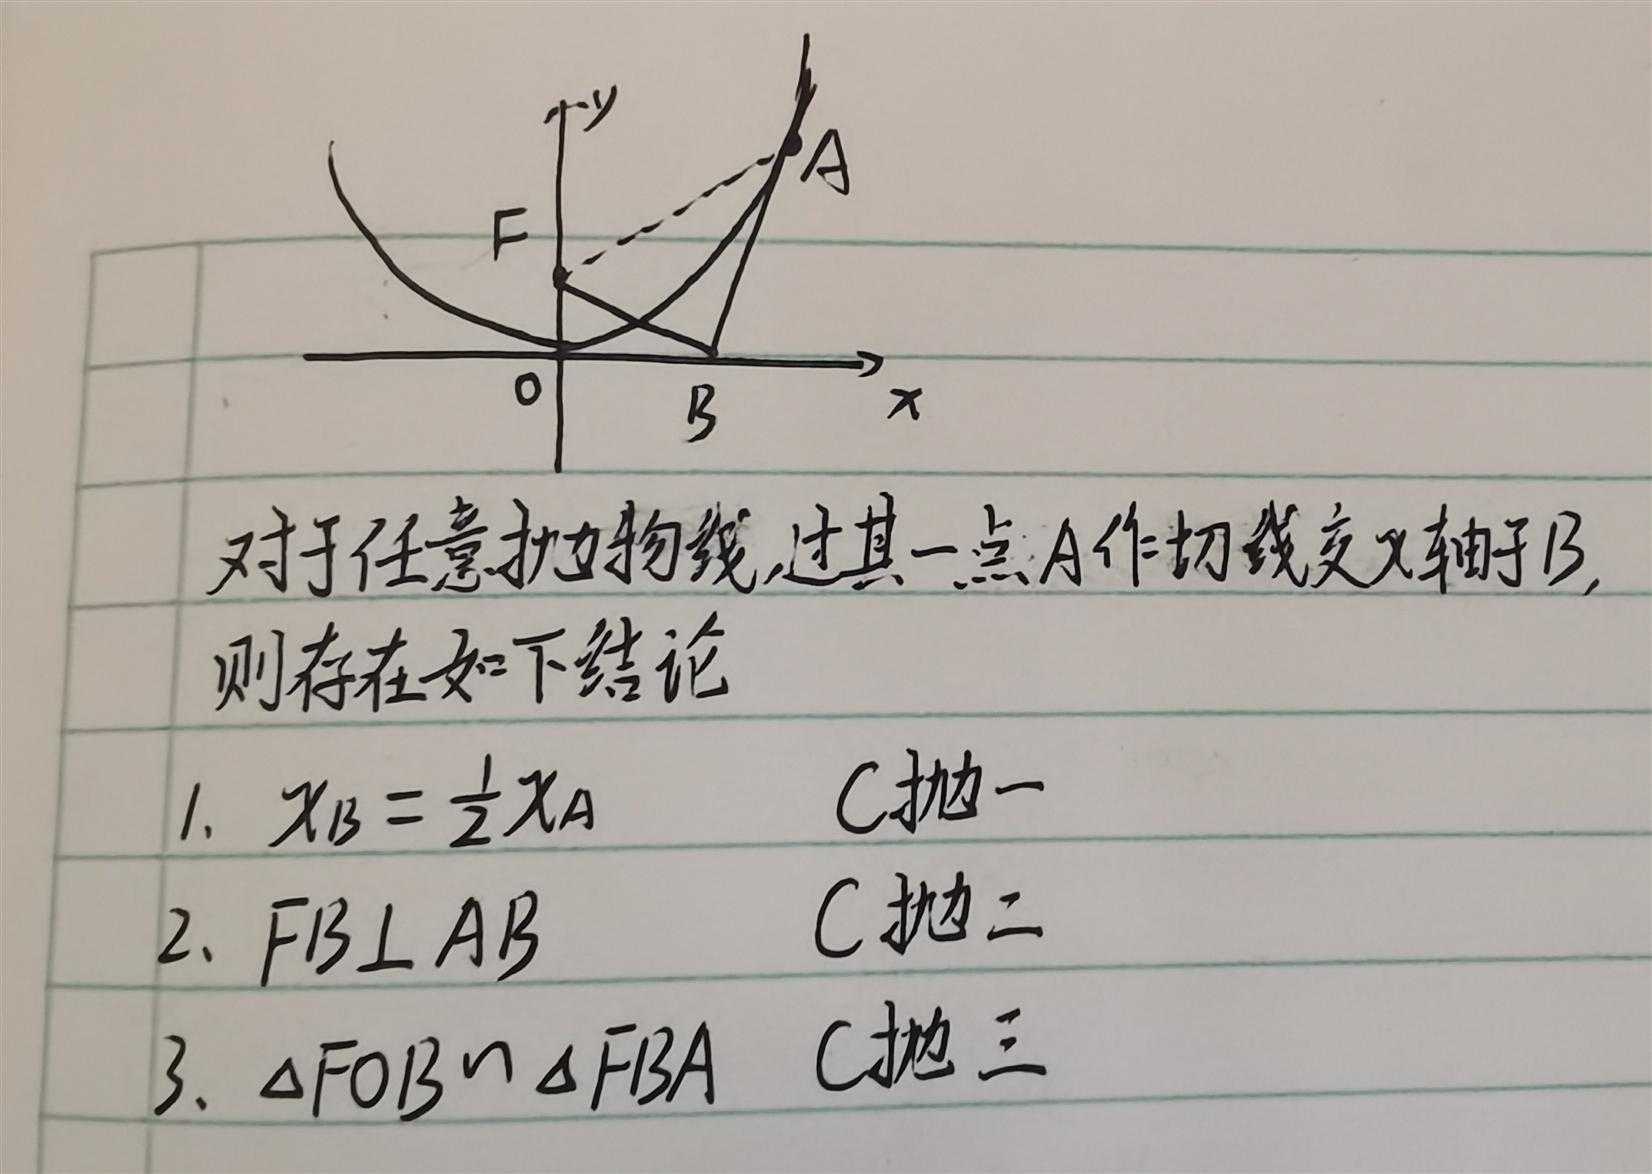 y
A
F
O
B
x
对于任意抛物线,过其一点A作切线交x轴于B,
则存在如下结论
1. xB = 1/2 xA C抛一
2、FB⊥AB C抛二
3、△FOB∽△FBA C抛三